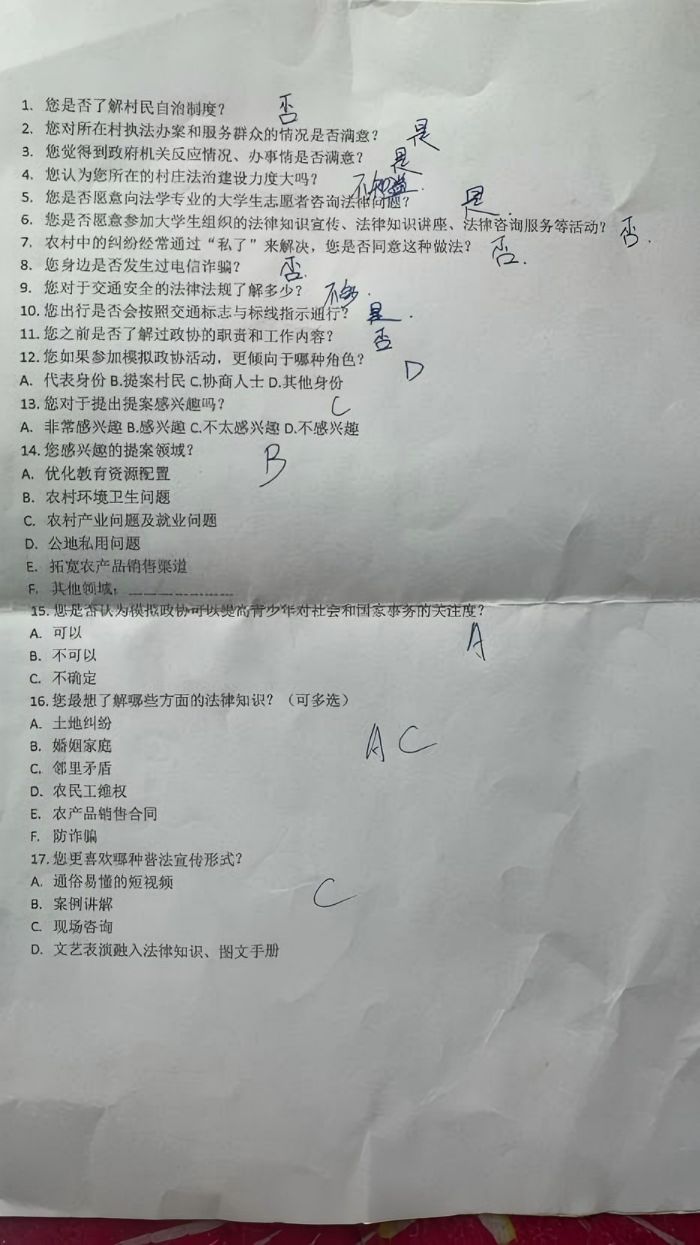 1. 您是否了解村民自治制度? 否
2. 您对所在村执法办案和服务群众的情况是否满意? 是
3. 您觉得到政府机关反应情况、办事情是否满意? 是
4. 您认为您所在的村庄法治建设力度大吗? 不知道.
5. 您是否愿意向法学专业的大学生志愿者咨询法律问题? 是.
6. 您是否愿意参加大学生组织的法律知识宣传、法律知识讲座、法律咨询服务等活动? 否.
7. 农村中的纠纷经常通过“私了”来解决，您是否同意这种做法? 否.
8. 您身边是否发生过电信诈骗? 否.
9. 您对于交通安全的法律法规了解多少? 不多.
10. 您出行是否会按照交通标志与标线指示通行? 是.
11. 您之前是否了解过政协的职责和工作内容? 否
12. 您如果参加模拟政协活动，更倾向于哪种角色? D
A. 代表身份 B.提案村民 C.协商人士 D.其他身份
13. 您对于提出提案感兴趣吗? C
A. 非常感兴趣 B.感兴趣 C.不太感兴趣 D.不感兴趣
14. 您感兴趣的提案领域? B
A. 优化教育资源配置
B. 农村环境卫生问题
C. 农村产业问题及就业问题
D. 公地私用问题
E. 拓宽农产品销售渠道
F. 其他领域：
15. 您是否认为模拟政协可以提高青少年对社会和国家事务的关注度? A
A. 可以
B. 不可以
C. 不确定
16. 您最想了解哪些方面的法律知识? （可多选）
A. 土地纠纷
B. 婚姻家庭 A C
C. 邻里矛盾
D. 农民工维权
E. 农产品销售合同
F. 防诈骗
17. 您更喜欢哪种普法宣传形式?
A. 通俗易懂的短视频 C
B. 案例讲解
C. 现场咨询
D. 文艺表演融入法律知识、图文手册